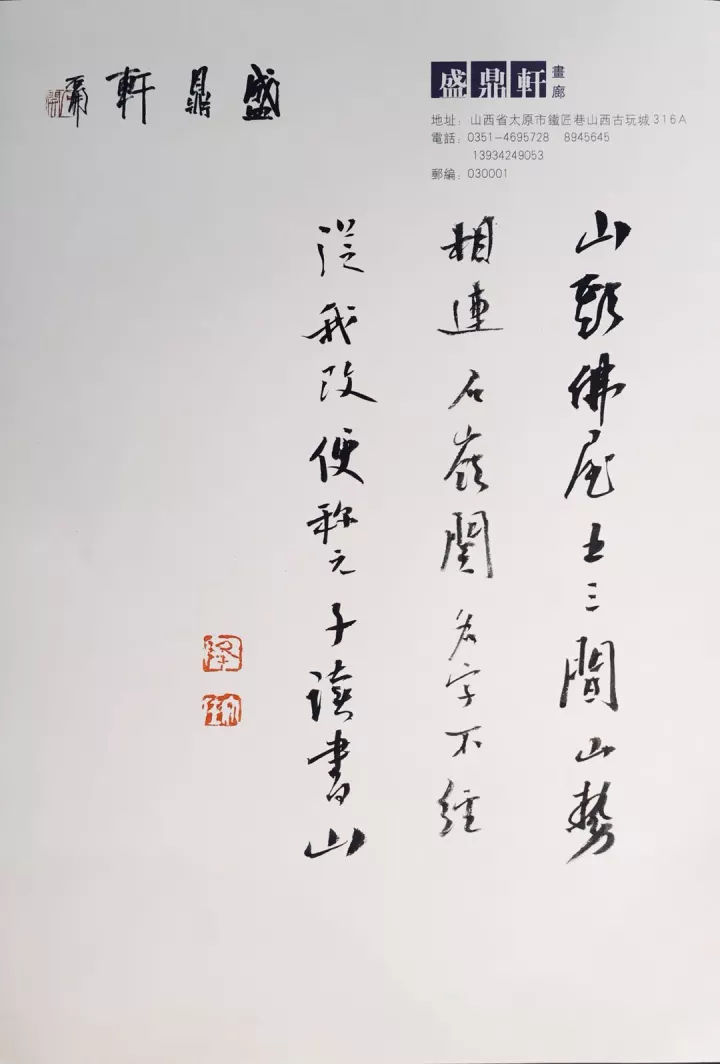 盛鼎軒
盛鼎軒 畫廊
地址：山西省太原市鐵匠巷山西古玩城316A
電話：0351-4695728 8945645
13934249053
郵編：030001
山頭佛屋五三間山勢
相連石嶺關名字不經
從我改便称元子读書山